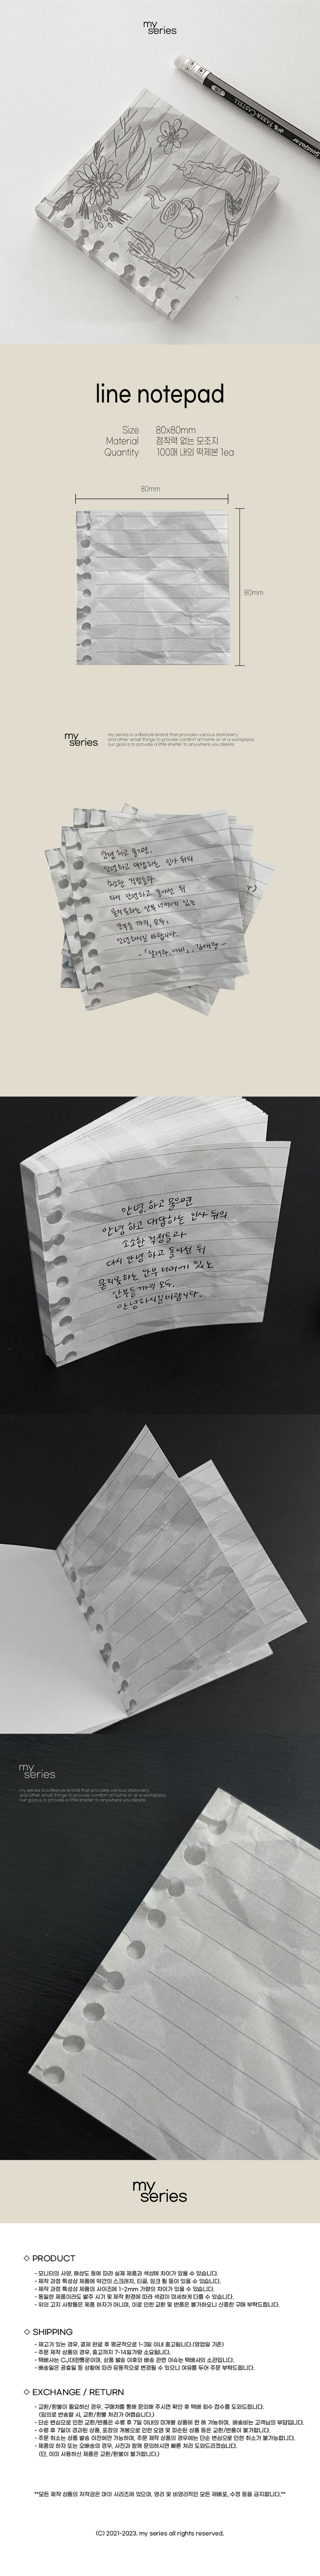 my
series
FABER CASTELL
line notepad
Size 80x80mm
Material 점착력 없는 모조지
Quantity 100매 내외 떡제본 1ea
80mm
80mm
my
series
my series is a lifestyle brand that provides various stationery
and other small things to provide comfort at home or at a workplace.
our goal is to provide a little shelter to anywhere you desire.
안녕 하고 물으면,
안녕하고 대답하는 인사 뒤의
소소한 걱정들과
다시 안녕하고 돌아선 뒤
묻지 못하는 안부 너머에 있는
안부들까지, 모두,
안녕하시길 바랍니다.
안녕, 하고 물으면
안녕 하고 대답하는 인사 뒤의
소소한 걱정들과
다시 안녕 하고 돌아선 뒤
묻지못하는 안부 너머에 있는
안부들까지 모두,
안녕하시길바랍니다.
my
series
my series is a lifestyle brand that provides various stationery
and other small things to provide comfort at home or at a workplace.
our goal is to provide a little shelter to anywhere you desire.
my
series
◇ PRODUCT
- 모니터의 사양, 해상도 등에 따라 실제 제품과 색상에 차이가 있을 수 있습니다.
- 제작 과정 특성상 제품에 약간의 스크래치, 티끌, 잉크 튐 등이 있을 수 있습니다.
- 제작 과정 특성상 제품의 사이즈에 1-2mm 가량의 차이가 있을 수 있습니다.
- 동일한 제품이라도 발주 시기 및 제작 환경에 따라 색감이 미세하게 다를 수 있습니다.
- 위의 고지 사항들은 제품 하자가 아니며, 이로 인한 교환 및 반품은 불가하오니 신중한 구매 부탁드립니다.
◇ SHIPPING
- 재고가 있는 경우, 결제 완료 후 평균적으로 1-3일 이내 출고됩니다.(영업일 기준)
- 주문 제작 상품의 경우, 출고까지 7-14일가량 소요됩니다.
- 택배사는 CJ대한통운이며, 상품 발송 이후의 배송 관련 이슈는 택배사의 소관입니다.
- 배송일은 공휴일 등 상황에 따라 유동적으로 변경될 수 있으니 여유를 두어 주문 부탁드립니다.
◇ EXCHANGE / RETURN
- 교환/환불이 필요하신 경우, 구매처를 통해 문의해 주시면 확인 후 택배 회수 접수를 도와드립니다.
(임의로 반송할 시, 교환/환불 처리가 어렵습니다.)
- 단순 변심으로 인한 교환/반품은 수령 후 7일 이내의 미개봉 상품에 한 해 가능하며, 배송비는 고객님의 부담입니다.
- 수령 후 7일이 경과된 상품, 포장의 개봉으로 인한 오염 및 파손된 상품 등은 교환/반품이 불가합니다.
- 주문 취소는 상품 발송 이전에만 가능하며, 주문 제작 상품의 경우에는 단순 변심으로 인한 취소가 불가능합니다.
- 제품의 하자 또는 오배송의 경우, 사진과 함께 문의하시면 빠른 처리 도와드리겠습니다.
(단, 이미 사용하신 제품은 교환/환불이 불가합니다.)
**모든 제작 상품의 저작권은 마이 시리즈에 있으며, 영리 및 비영리적인 모든 재배포, 수정 등을 금지합니다.**
(C) 2021-2023. my series all rights reserved.